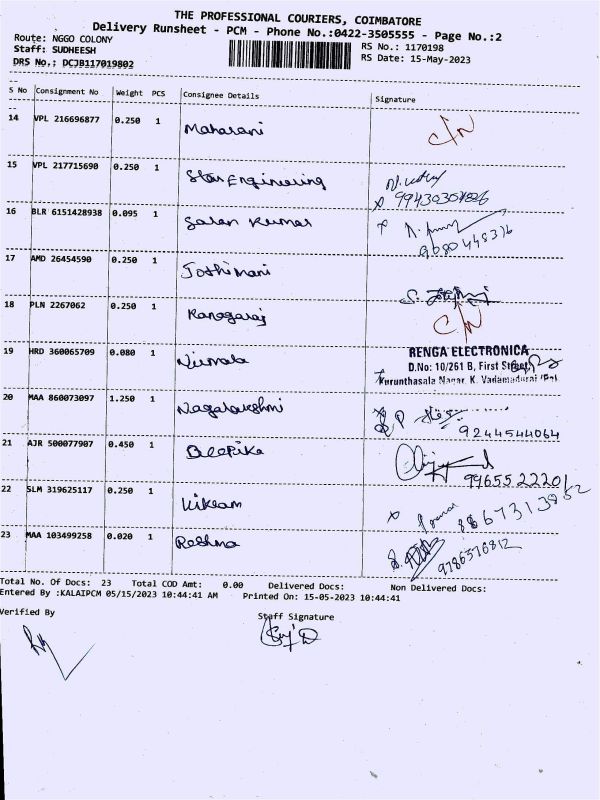 THE PROFESSIONAL COURIERS, COIMBATORE
Delivery Runsheet - PCM - Phone No.:0422-3505555 - Page No.:2
Route: NGGO COLONY
Staff: SUDHEESH
DRS No.: DCJB117019802
RS No.: 1170198
RS Date: 15-May-2023
S No Consignment No Weight PCS Consignee Details Signature
14 VPL 216696877 0.250 1 Maharani C/N
15 VPL 217715690 0.250 1 Star Engineering
16 BLR 6151428938 0.095 1 Saran Kumar 9080448316
17 AMD 26454590 0.250 1 Jothimani
18 PLN 2267062 0.250 1 Kanagaraj C/N
19 HRD 360065709 0.080 1 Nirmala RENGA ELECTRONICA
D.No: 10/261 B, First Street,
Kurunthasala Nagar, K. Vadamadurai (Po)
20 MAA 860073097 1.250 1 Nagalakshmi 9244544064
21 AJR 500077907 0.450 1 Deepika 9965522201
22 SLM 319625117 0.250 1 Vikram
23 MAA 103499258 0.020 1 Reshma 9786576812
Total No. Of Docs: 23 Total COD Amt: 0.00 Delivered Docs: Non Delivered Docs:
Entered By :KALAIPCM 05/15/2023 10:44:41 AM Printed On: 15-05-2023 10:44:41
Verified By
Staff Signature